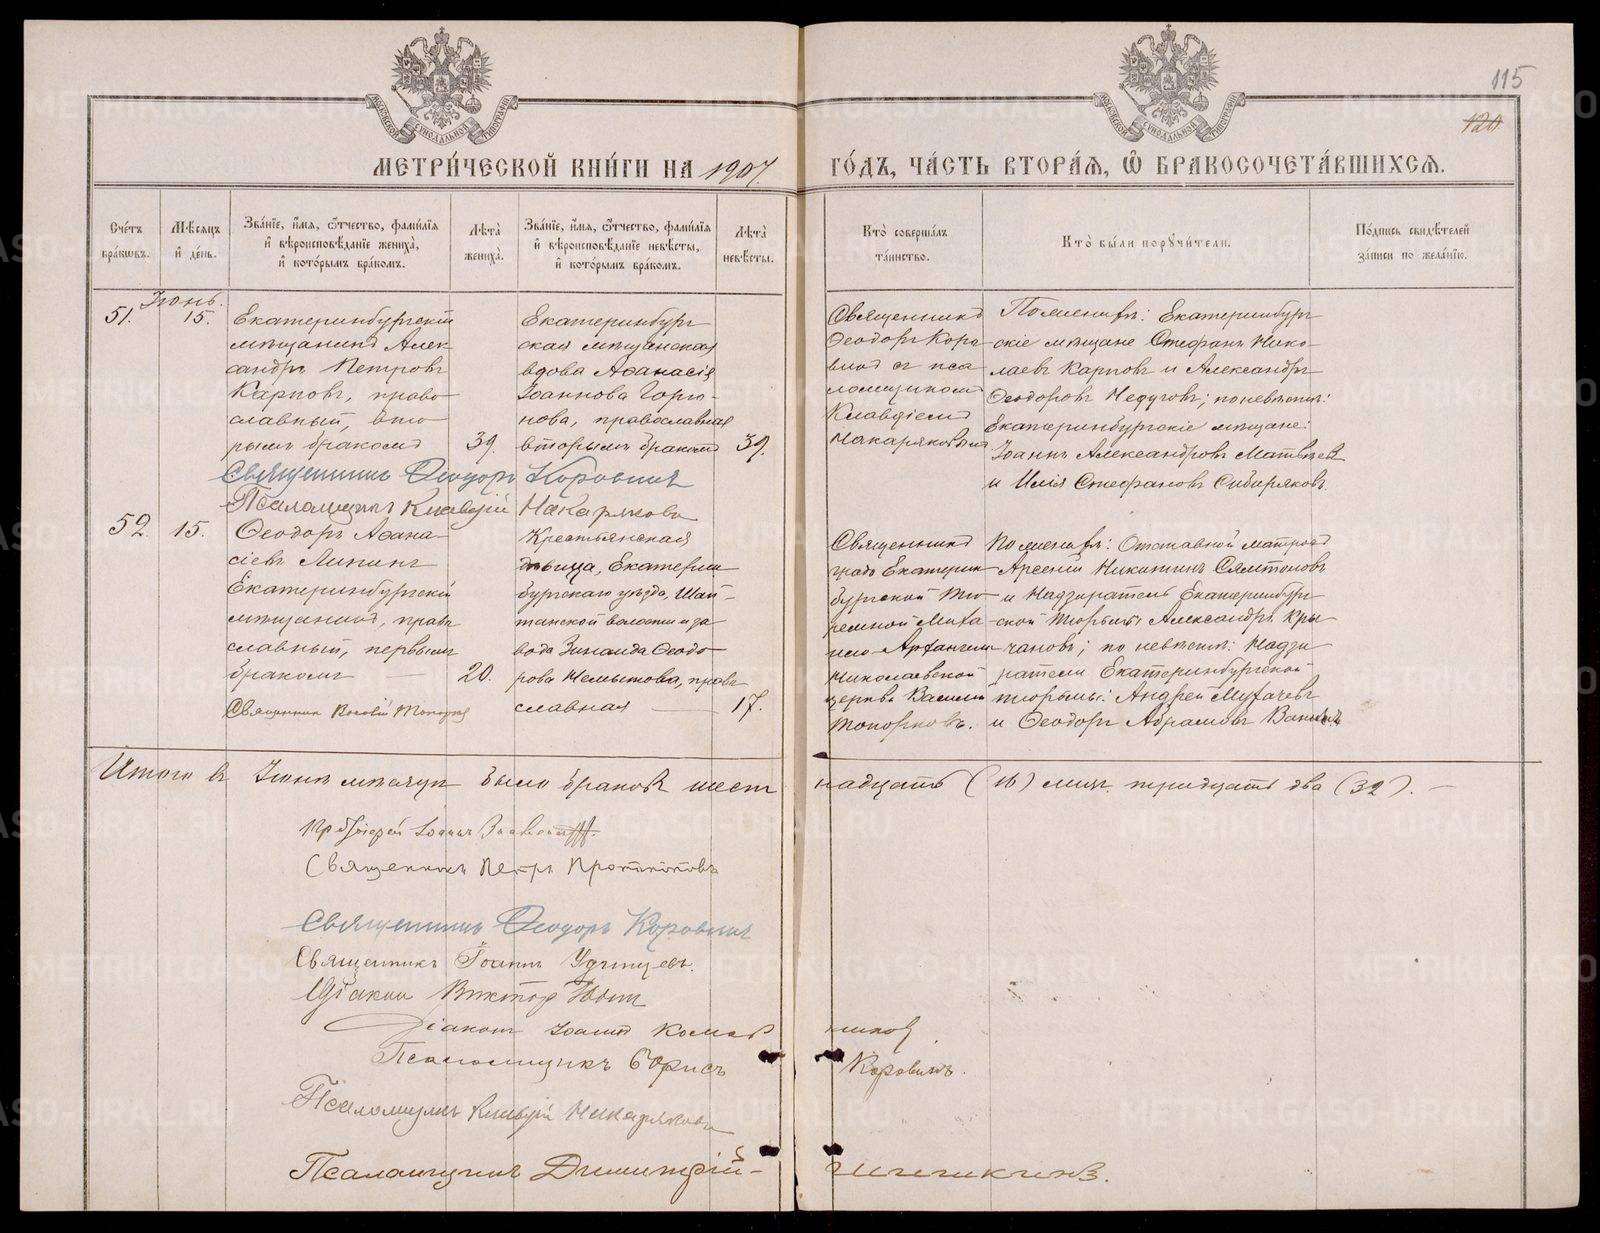 115
120
МЕТРИ́ЧЕСКОЙ КНИ́ГИ НА 1907.
ГО́ДЪ, ЧА́СТЬ ВТОРА́Я, Ѡ҆ БРАКОСОЧЕТА́ВШИХСЯ.
Сче́тъ бра́ковъ.
Мѣ́сяцъ и҆ де́нь.
Зва́нїе, и҆́мя, ѻ҆́тчество, фами́лїя и҆ вѣроисповѣ́данїе жениха̀, и҆ кото́рымъ бра́комъ.
Лѣта̀ жениха̀.
Зва́нїе, и҆́мя, ѻ҆́тчество, фами́лїя и҆ вѣроисповѣ́данїе невѣ́сты, и҆ кото́рымъ бра́комъ.
Лѣта̀ невѣ́сты.
Кто̀ соверша́лъ та́инство.
Кто̀ бы́ли порꙋчи́тели.
По́дпись свидѣ́телей за́писи по жела́нїю.
Іюнь.
51.
15.
Екатеринбургскій
мѣщанинъ Алек
сандръ Петровъ
Карповъ, право
славный, вто
рымъ бракомъ
39.
Екатеринбург
ская мѣщанская
вдова Аѳанасія
Іоаннова Горю-
нова, православная
вторымъ бракомъ
39.
Священникъ
Ѳеодоръ Коро
винъ съ пса
ломщикомъ
Клавдіемъ
Макаряковымъ
По женихѣ: Екатеринбург
скіе мѣщане Стефанъ Нико-
лаевъ Карповъ и Александръ
Ѳеодоровъ Недуговъ; по невѣстѣ:
Екатеринбургскіе мѣщане:
Іоаннъ Александровъ Матвѣев
и Илія Стефановъ Сибиряковъ.
Священникъ Ѳеодоръ Коровинъ
Псаломщикъ Клавдій Макаряковъ
52.
15.
Ѳеодоръ Аѳана-
сіевъ Липинъ
Екатеринбургскій
мѣщанинъ, прав
славный, первымъ
бракомъ
20.
Крестьянская
дѣвица, Екатерин
бургскаго уѣзда, Шай-
танской волости и за
вода Зинаида Ѳеодо
рова Немытова, прав
славная
17.
Священникъ
града Екатерин
бургской Тю
ремной Миха
ило-Архангело
Николаевской
церкви Василій
Топорковъ.
По женихѣ: Отставной матрос
Арсеній Никитинъ Сямтоновъ
и Надзиратель Екатеринбург
ской Тюрьмы Александръ Кры
чановъ; по невѣстѣ: Надзи
ратели Екатеринбургской
тюрьмы: Андрей Мухачевъ
и Ѳеодоръ Абрамовъ
Священник Василій Топорков
Итого въ Іюнѣ мѣсяцѣ было браковъ шест
надцать (16) лицъ тридцать два (32).
Протоіерей Іоаннъ
Священникъ Петръ Протопоповъ
Священникъ Ѳеодоръ Коровинъ
Священникъ Іоаннъ Удинцевъ.
Діаконъ Викторъ
Діаконъ Іоаннъ Комар
никовъ
Псаломщикъ Борисъ
Коровинъ.
Псаломщикъ Клавдій Макаряковъ
Псаломщикъ Димитрій-
Шишкинъ.